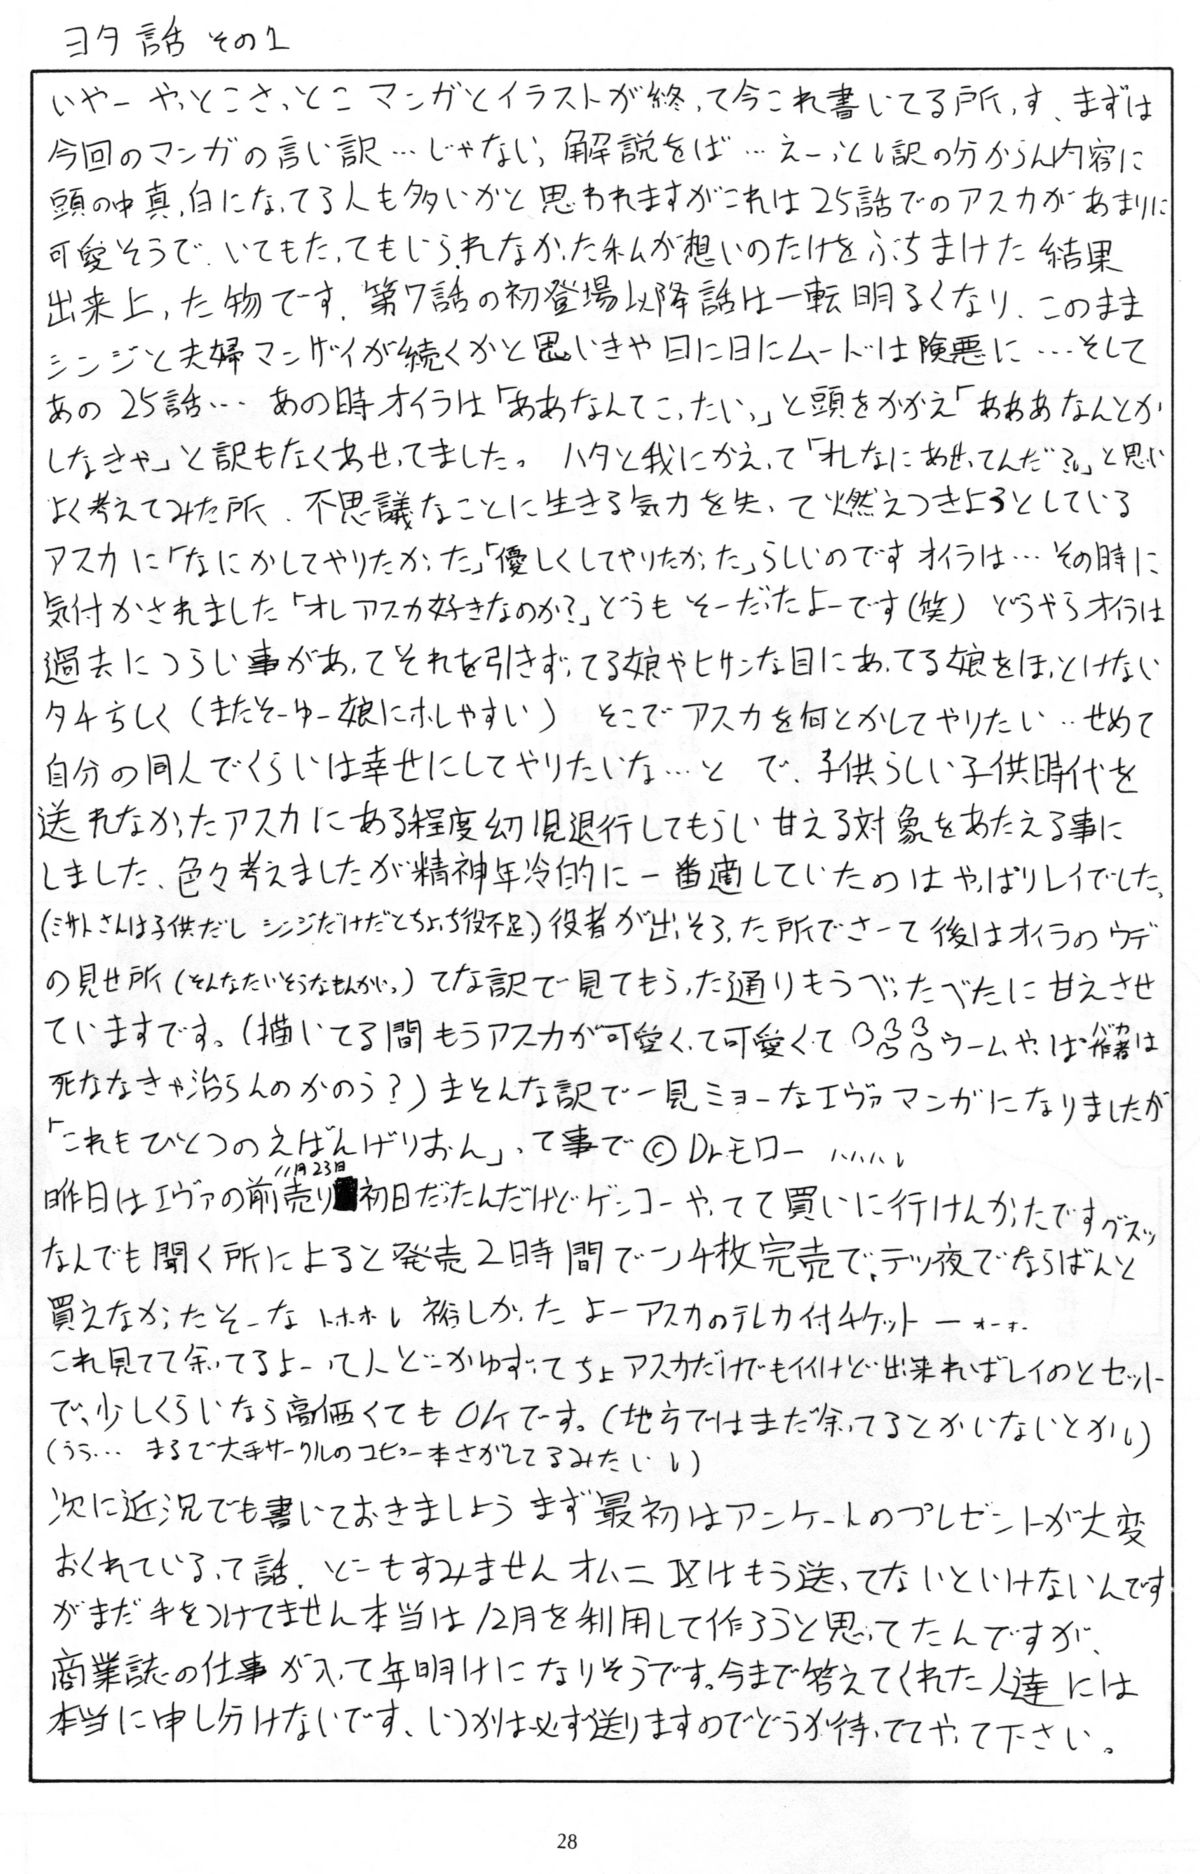 ヨタ話 その1
いやー やっとこさっとこ マンガとイラストが終って今これ書いてる所っす、まずは
今回のマンガの言い訳…じゃない、解説をば…えーっとい訳の分からん内容に
頭の中真っ白になってる人も多いかと思われますがこれは25話でのアスカがあまりに
可愛そうで、いてもたってもいられなかった私が想いのたけをぶちまけた結果
出来上った物です、第7話の初登場以降話は一転明るくなり、このまま
シンジと夫婦マンザイが続くかと思いきや日に日にムードは険悪に…そして
あの25話… あの時オイラは「ああなんてこったいっ」と頭をかかえ「あああなんとか
しなきゃ」と訳もなくあせってました。ハタと我にかえって「オレなにあせってんだ?」と思い
よく考えてみた所、不思議なことに生きる気力を失って燃えつきようとしている
アスカに「なにかしてやりたかった」「優しくしてやりたかった」らしいのですオイラは…その時に
気付かされました「オレアスカ好きなのか?」どうもそーだったよーです(笑) どうやらオイラは
過去につらい事があってそれを引きずってる娘やヒサンな目にあってる娘をほっとけない
タチらしく(またそーゆー娘にホレやすい) そこでアスカを何とかしてやりたい‥せめて
自分の同人でくらいは幸せにしてやりたいな…と で、子供らしい子供時代を
送れなかったアスカにある程度幼児退行してもらい甘える対象をあたえる事に
しました、色々考えましたが精神年冷的に一番適していたのはやっぱりレイでした、
(ミサトさんは子供だし シンジだけだとちょっち役不足)役者が出そろった所でさーて後はオイラのウデ
の見せ所(そんなたいそうなもんかいっ)てな訳で見てもらった通りもうべったべたに甘えさせ
ていますです。(描いてる間もうアスカが可愛くって可愛くて ウームやっぱバカ作者は
死ななきゃ治らんのかのう?)まそんな訳で一見ミョーなエヴァマンガになりましたが
「これもひとつのえばんげりおん」って事で ©Dr.モロー
昨日はエヴァの前売り11月23日初日だったんだけどゲンコーやってて買いに行けんかったですグスッ
なんでも聞く所によると発売2時間で一ツ4枚完売で、テツ夜でならばんと
買えなかったそーな トホホ 裕しかったよーアスカのテレカ付チケットー
これ見てて余ってるよーって人どーかゆずってちょアスカだけでもイイけど出来ればレイのとセット
で、少しくらいなら高価くてもOKです。(地方ではまだ余ってるとかいないとか)
(うう… まるで大手サークルのコピー本さがしてるみたい)
次に近況でも書いておきましょう まず最初はアンケートのプレゼントが大変
おくれているって話、どーもすみませんオムニⅨはもう送ってないといけないんです
がまだ手をつけてません本当は12月を利用して作ろうと思ってたんですが、
商業誌の仕事が入って年明けになりそうです。今まで答えてくれた人達には
本当に申し分けないです、いつかは必ず送りますのでどうか待っててやって下さい。
28